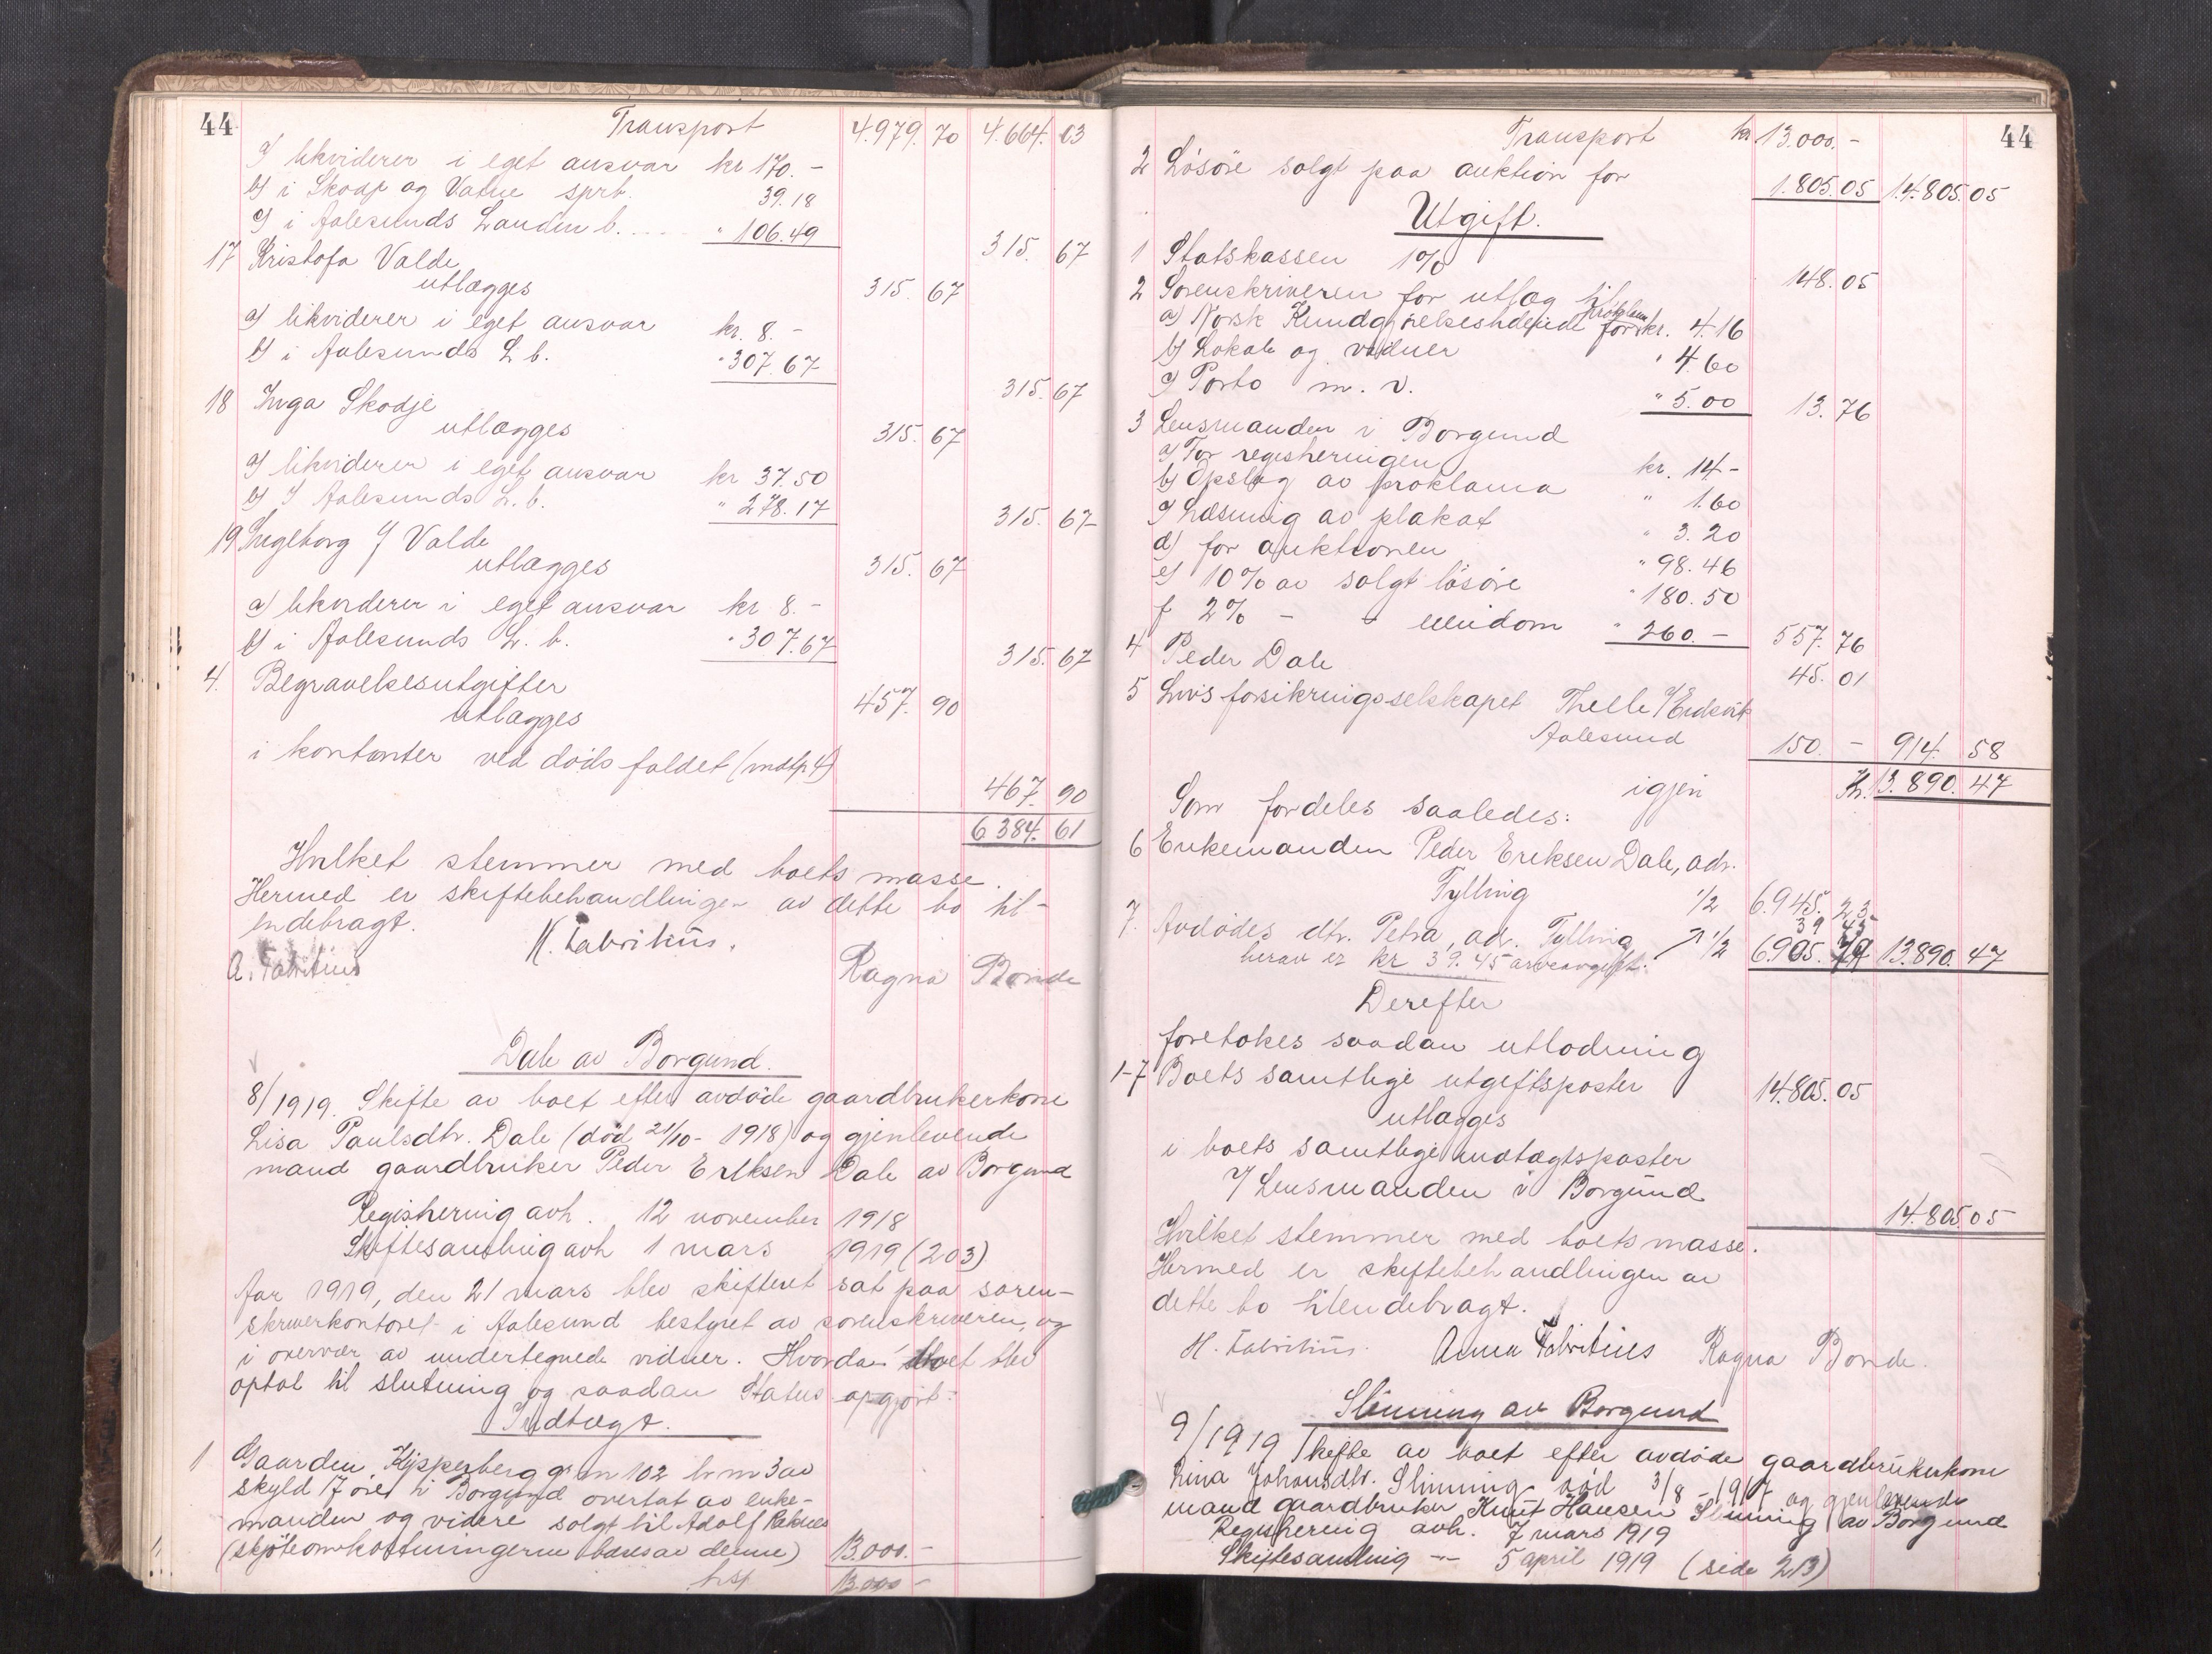 44
Transport 4.979. 70 4.664. 03
I likviderer i eget ansvar kr 170.-
b) i Skodje og Vatne sprb. 39.18
c) i Aalesunds Landm b. .... " 106.49 315. 67
17 Kristofa Valde 315. 67
utlægges
a) likviderer i eget ansvar kr. 8.-
b) i Aalesunds L. b. " 307.67 315. 67
18 Inga Skodje 315. 67
utlægges
a) likviderer i eget ansvar kr 37.50
b) I Aalesunds L. b. " 278.17 315. 67
19 Ingeborg Valde 315. 67
utlægges
a) likviderer i eget ansvar kr 8.-
b) i Aalesunds L. b. " 307.67 315. 67
4. Begravelsesutgifter 457. 90
utlægges
i kontanter ved dødsfaldet (indtp 4) 467. 90
6384. 61
Hvilket stemmer med boets masse.
Hermed er skiftebehandlingen av dette bo til-
endebragt.
H. Fabritius.
A. Fabritius Ragna Bonde
Dale av Borgund.
8/1919. Skifte av boet efter avdøde gaardbrukerkone
Lisa Paulsdtr. Dale (død 21/10 - 1918) og gjenlevende
mand gaardbruker Peder Eriksen Dale av Borgund
Registrering avh. 12 november 1918
Skiftesamling avh 1 mars 1919 (203)
Aar 1919, den 21 mars blev skifteret sat paa soren-
skriverkontoret i Aalesund bestyret av sorenskriveren, og
i overvær av undertegnede vidner. Hvorda boet blev
optat til slutning og saadan Status opgjort:
Indtægt.
1 Gaarden Kipperberg g n 102 br n 3 av
skyld 17 øre i Borgund overtat av enke-
manden og videre solgt til Adolf
(skjøteomkostningerne bæres av denne) 13.000.-
13.000 -
44
Transport kr 13.000.-
2 Løsøre solgt paa auktion for 1.805.05 14.805.05
Utgift.
1 Statskassen 1% 148.05
2 Sorenskriveren for utlæg til
a) Norsk Kundgjørelsestidende for proklama kr. 4.16
b) Lokale og vidner " 4.60
c) Porto m. v. " 5.00 13.76
3 Lensmanden i Borgund
a) For registreringen kr. 14.-
b) Opslag av proklama " 1.60
c) Læsning av plakat " 3.20
d) for auktionen " 98.46
e) 10% av solgt løsøre " 180.50
f 2% - - eiendom " 260.- 557.76
4 Peder Dale 45.01
5 Livsforsikringsselskapet Thelle
Aalesund 150.- 914. 58
igjen Kr. 13.890. 47
Som fordeles saaledes:
6 Enkemanden Peder Eriksen Dale, adr.
Tylling 1/2 6.945. 23
7. Avdødes dtr. Petra, adr. Tylling 1/2 39 45
herav er kr 39.45 arveavgift. 6905. 79 13.890. 47
Derefter
foretokes saadan utlodning
1-7 Boets samtlige utgiftsposter 14.805.05
utlægges
i boets samtlige indtægtsposter
v/ Lensmanden i Borgund 14.805.05
Hvilket stemmer med boets masse.
Hermed er skiftebehandlingen av
dette bo tilendebragt.
H. Fabritius. Anna Fabritius Ragna Bonde.
Slinning av Borgund
9/1919 Skifte av boet efter avdøde gaardbrukerkone
Lina Johansdtr. Slinning død 3/8 - 1917 og gjenlevende
mand gaardbruker Knut Hansen Slinning av Borgund
Registrering avh. 7 mars 1919
Skiftesamling — 5 april 1919 (side 213)